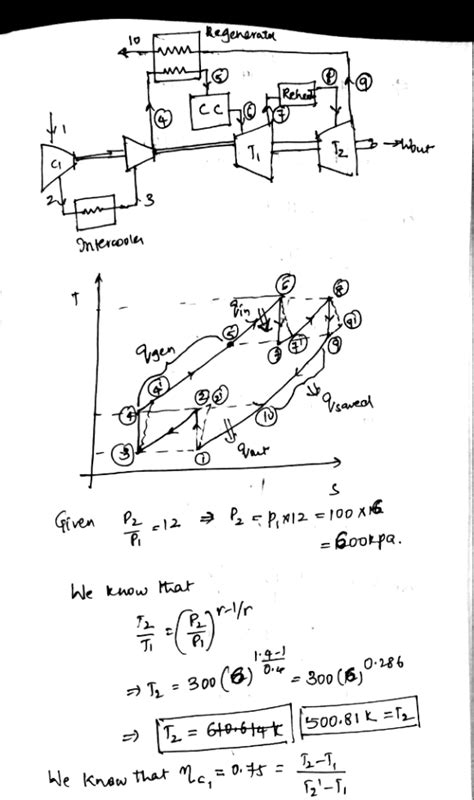 10 Regenerator
5
C.C
6
4
7
Reheat
8
9
1
C1
T1
T2
Wout
2
3
Intercooler
T
6
8
qin
5
qgen
7
7'
9'
9
4'
4
2
2'
10
qsaved
3
1
qout
S
Given P2/P1 = 12 ⇒ P2 = P1 × 12 = 100 × 6
= 600kpa.
We know that
T2/T1 = (P2/P1)^r-1/r
⇒ T2 = 300 (6)^1.4-1/0.4 = 300 (6)^0.286
⇒ T2 = 610.614 k 500.81 k = T2
We know that ηc1 = 0.75 = T2-T1/T2'-T1